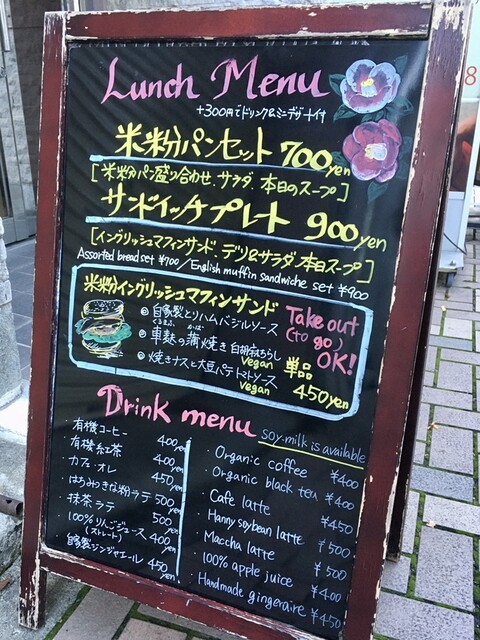 Lunch Menu
+300円でドリンク&ミニデザート付
米粉パンセット 700yen
[米粉パン盛り合わせ、サラダ、本日のスープ]
サンドイッチプレート 900yen
[イングリッシュマフィンサンド、デリ&サラダ、本日スープ]
Assorted bread set ¥700/English muffin sandwiche set ¥900
米粉イングリッシュマフィンサンド
自家製とりハムバジルソース
車麩の蒲焼き 白胡麻ちらし
くるまふ かば
vegan
焼きナスと大豆パテ トマトソース
vegan
Take out
(to go)
OK!
単品
450yen
Drink menu
soy.milk is available
・有機コーヒー 400yen
・有機紅茶 400yen
・カフェ・オレ 450yen
・はちみつきな粉ラテ 500yen
・抹茶ラテ 500yen
・100%りんごジュース 400yen
(ストレート)
・自家製ジンジャエール 450yen
・Organic coffee ¥400
・Organic black tea ¥400
・Cafe latte ¥450
・Hanny soybean latte ¥500
・Maccha latte ¥500
・100% apple juice ¥400
・Handmade gingeraire ¥450
8